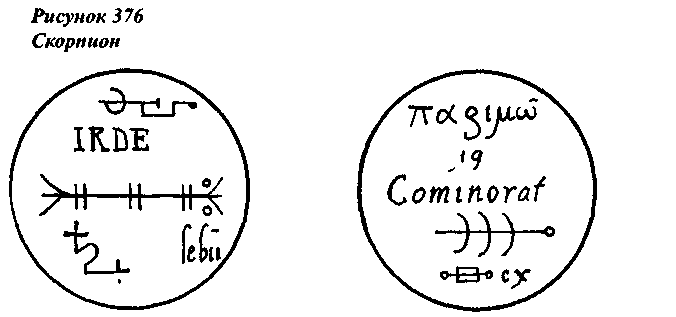 Рисунок 376
Скорпион
IRDE
παριμω̄
Cominoraf
cx